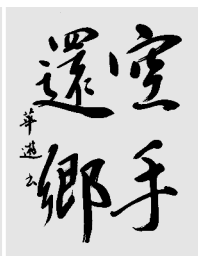 空手
還鄉
華遊書